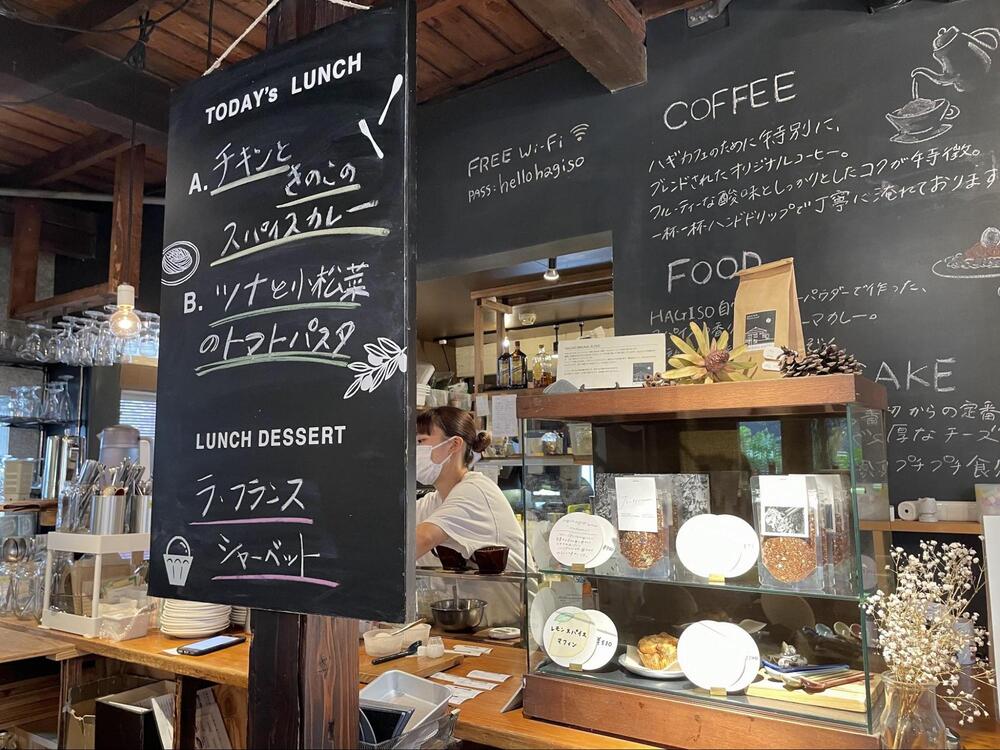 TODAY's LUNCH
A. チキンと
きのこの
スパイスカレー
B. ツナと小松菜
のトマトパスタ
LUNCH DESSERT
ラ・フランス
シャーベット
FREE Wi-Fi
PASS: hellohagiso
COFFEE
ハギカフェのために特別に、
ブレンドされたオリジナルコーヒー。
フルーティーな酸味としっかりとしたコクが特徴。
一杯一杯ハンドドリップで丁寧に淹れております
FOOD
HAGISO自 パウダーで作った、
マカレー。
AKE
からの定番
厚なチーズ
プチプチ食
レモンスパイス
マフィン